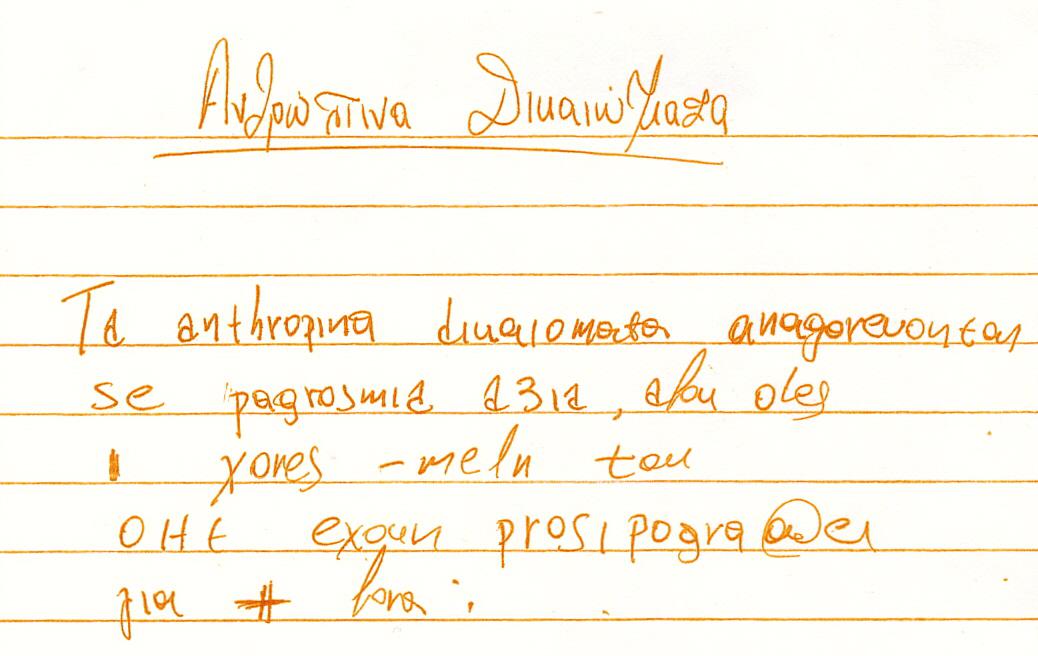 Ανθρώπινα Δικαιώματα
Ta anthropina dikaiomata anagorevontai
se pagrosmia a3ia, afou oles
ι χores - meln tou
OHE exoun prosipogra
για # fora :